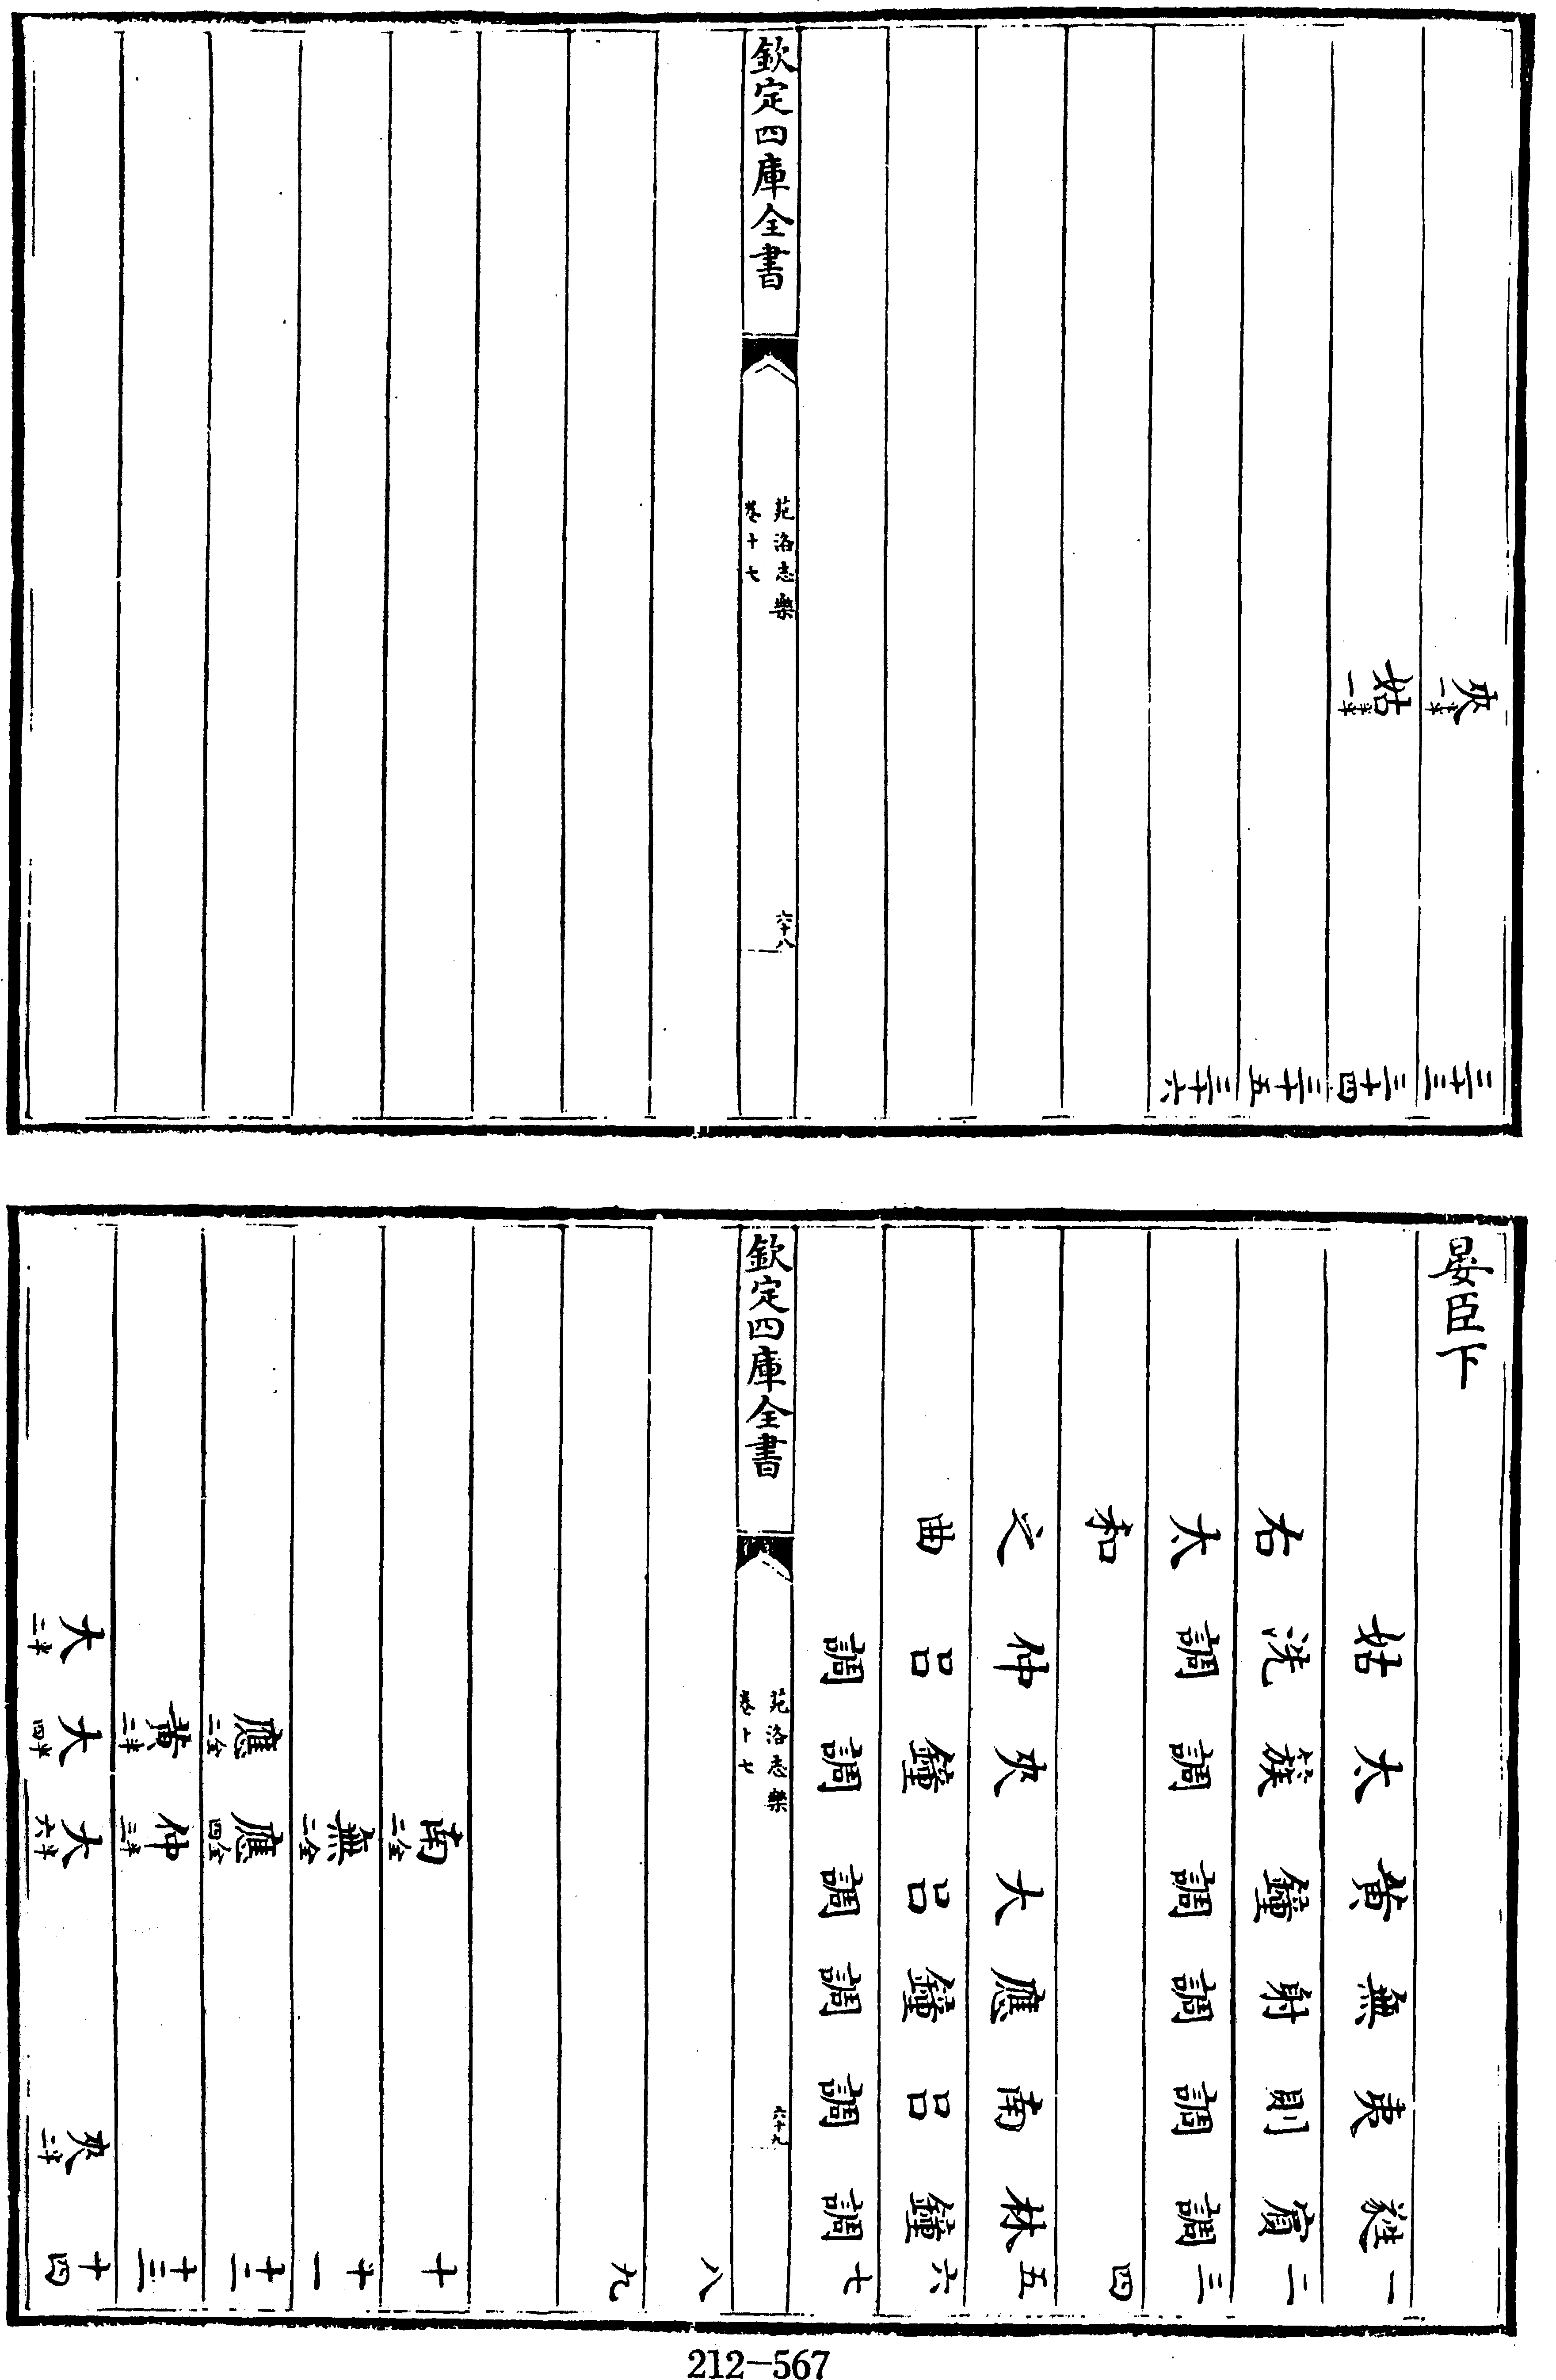 夾一半 三十三
姑一半 三十四
三十五
三十六
欽定四庫全書
苑洛志樂
卷十七
六十八
晏臣下
姑 太 黃 無 夷 蕤 一
右 洗 簇 鐘 射 則 賔 二
太 調 調 調 調 調 調 三
和 四
之 仲 夾 大 應 南 林 五
曲 呂 鐘 呂 鐘 呂 鐘 六
調 調 調 調 調 調 七
欽定四庫全書
苑洛志樂
卷十七
六十九
八
九
南二全 十
無二全 十一
應二全 應四全 十二
黃二半 仲三半 十三
大二半 大四半 大六半 夾二半 十四
212-567